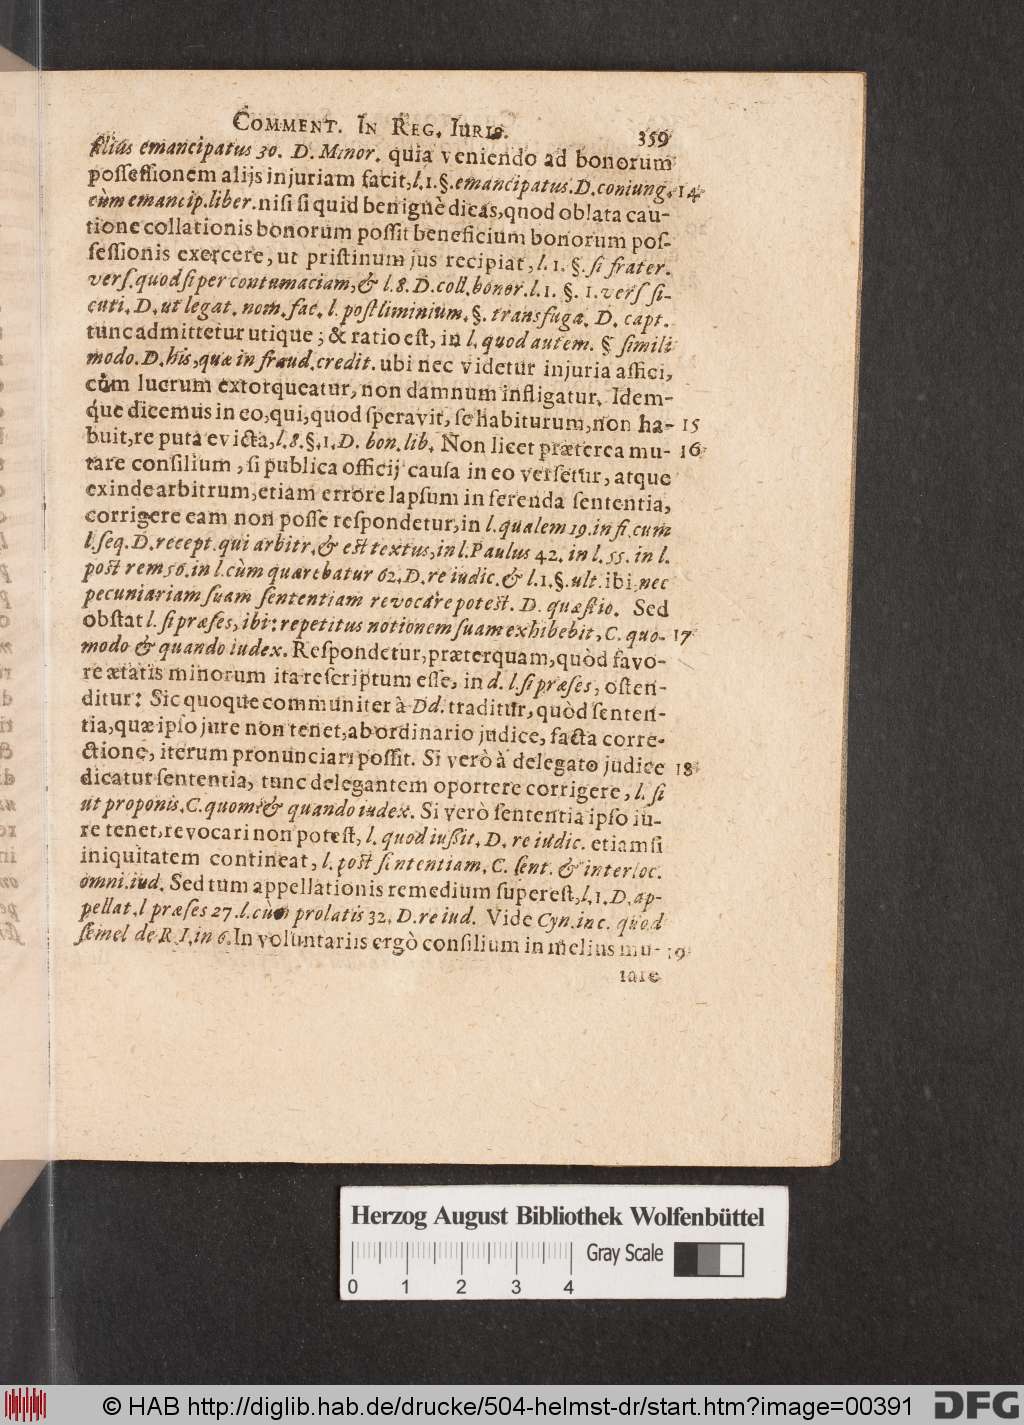 COMMENT. IN REG. IURIS. 359
filius emancipatus 30. D. Minor. quia veniendo ad bonorum
poſſeſſionem alijs injuriam facit, l. 1. §. emancipatus. D. coniung. 14
cùm emancip. liber. niſi ſi quid benignè dicas, quod oblata cau-
tione collationis bonorum poſſit beneficium bonorum poſ-
ſeſſionis exercere, ut priſtinum jus recipiat, l. 1. §. ſi frater.
verſ. quod ſi per contumaciam, & l. 8. D. coll. bonor. l. 1. §. 1. verſ ſi-
cuti. D. ut legat. nom. fac. l. poſtliminium. §. transfuga. D. capt.
tunc admittetur utique; & ratio eſt, in l. quod autem. § ſimili
modo. D. his, quæ in fraud. credit. ubi nec videtur injuria affici,
cùm lucrum extorqueatur, non damnum infligatur. Idem-
que dicemus in eo, qui, quod ſperavit, ſe habiturum, non ha- 15
buit, re puta evicta, l. 8. §. 1. D. bon. lib. Non licet præterea mu- 16
tare conſilium, ſi publica officij cauſa in eo verſetur, atque
exinde arbitrum, etiam errore lapſum in ferenda ſententia,
corrigere eam non poſſe reſpondetur, in l. qualem 19. in fi. cum
l. ſeq. D. recept. qui arbitr. & eſt textus, in l. Paulus 42. in l. 55. in l.
poſt rem 56. in l. cùm quærebatur 62. D. re iudic. & l. 1. §. ult. ibi, nec
pecuniariam ſuam ſententiam revocare poteſt. D. quæſtio. Sed
obſtat l. ſi præſes, ibi: repetitus notionem ſuam exhibebit, C. quo- 17
modo & quando iudex. Reſpondetur, præterquam, quòd favo-
re ætatis minorum ita reſcriptum eſſe, in d. l. ſi præſes, oſten-
ditur: Sic quoque communiter à Dd. traditur, quòd ſenten-
tia, quæ ipſo jure non tenet, ab ordinario judice, facta corre-
ctione, iterum pronunciari poſſit. Si verò à delegato judice 18
dicatur ſententia, tunc delegantem oportere corrigere, l. ſi
ut proponis. C. quom. & quando iudex. Si verò ſententia ipſo iu-
re tenet, revocari non poteſt, l. quod iuſſit. D. re iudic. etiamſi
iniquitatem contineat, l. poſt ſententiam. C. ſent. & interloc.
omni. iud. Sed tum appellationis remedium ſupereſt, l. 1. D. ap-
pellat. l præſes 27. l. cùm prolatis 32. D. re iud. Vide Cyn. in c. quod
ſemel de R I. in 6. In voluntariis ergò conſilium in melius mu- 19
tare
Herzog August Bibliothek Wolfenbüttel
Gray Scale
0 1 2 3 4
© HAB http://diglib.hab.de/drucke/504-helmst-dr/start.htm?image=00391
DFG